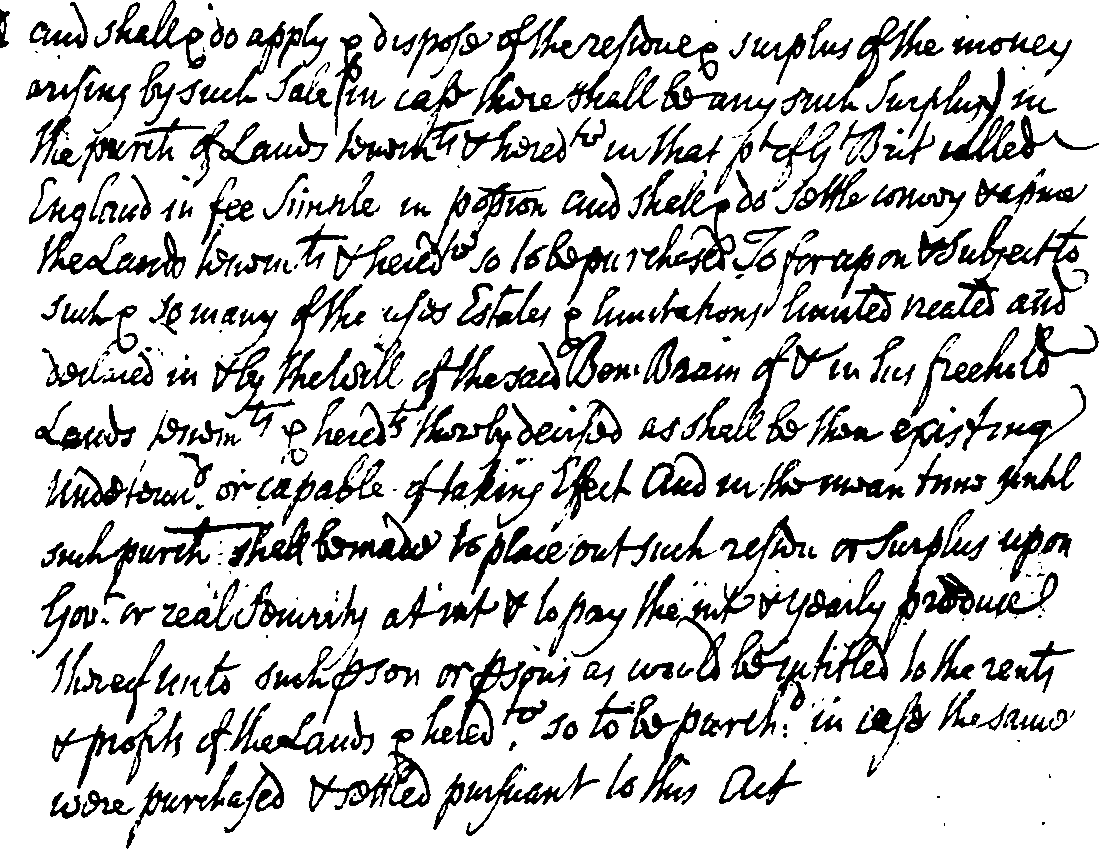 and shall & do apply & dispose of the residue & surplus of the money
arising by such Sale (in case there shall be any such Surplus) in
the purch of Lands tenemts & heredts in that pt of Gt Brit called
England in fee Simple in possion and shall & do settle convey & assure
the Lands tenemts & heredts so to be purchased To for upon & Subject to
such & so many of the uses Estates & limitations limited created and
declared in & by the Will of the said Ben: Brain of & in his freehold
Lands tenemts & heredts thereby devised as shall be then existing
Undetermd or capable of taking Effect And in the mean time until
such purch shall be made to place out such residue or Surplus upon
Govt or real Security at int & to pay the int & yearly produce
thereof unto such pson or psons as would be intitled to the rents
& profits of the Lands & heredts so to be purchd in case the same
were purchased & settled pursuant to this Act